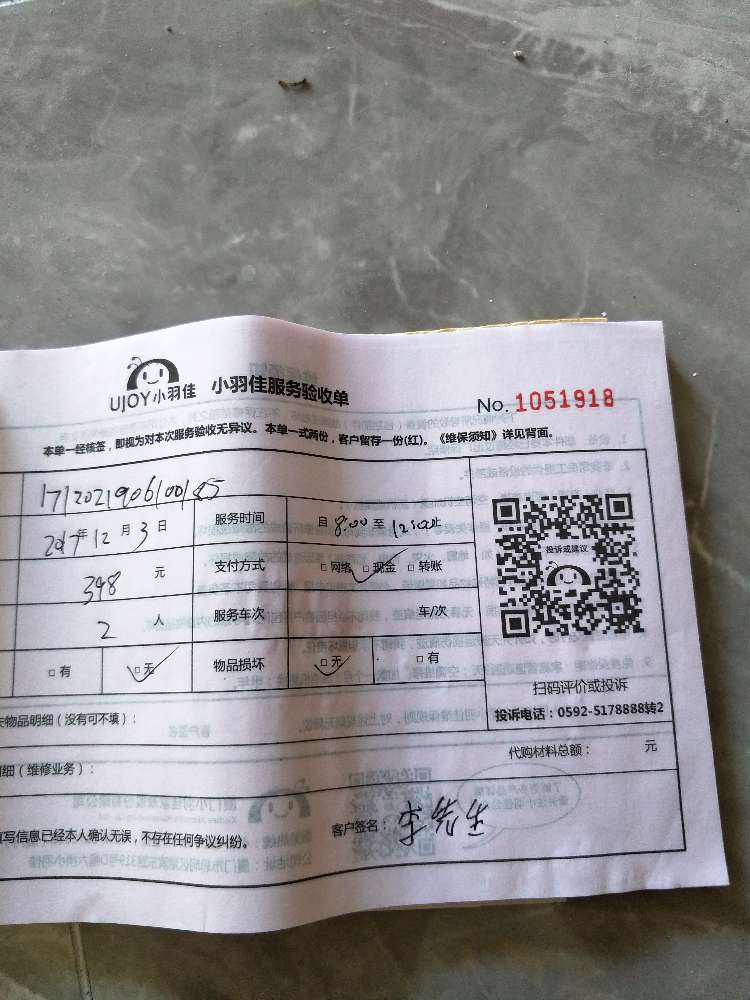 UJOY小羽佳 小羽佳服务验收单 No. 1051918
本单一经核签，即视为对本次服务验收无异议。本单一式两份，客户留存一份(红)。《维保须知》详见背面。
2017年12月3日 服务时间 自8:00至12:00止
398元 支付方式 □网络 □现金 □转账
投诉或建议
2人 服务车次 车/次
□有 □无 物品损坏 □无 □有
扫码评价或投诉
投诉电话：0592-5178888转2
物品明细（没有可不填）：
细（维修业务）： 代购材料总额： 元
写信息已经本人确认无误，不存在任何争议纠纷。 客户签名：李先生